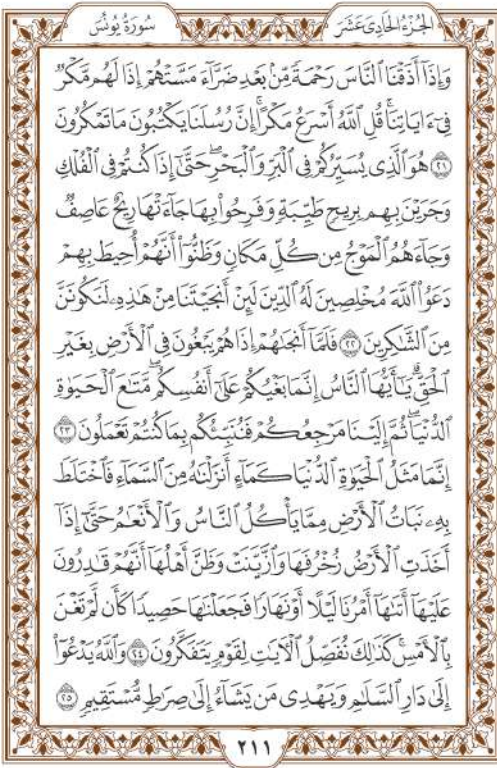 سُورَةُ يُونُسَ
الجُزْءُ الحَادِىَ عَشَرَ
وَإِذَآ أَذَقْنَا ٱلنَّاسَ رَحْمَةً مِّنۢ بَعْدِ ضَرَّآءَ مَسَّتْهُمْ إِذَا لَهُم مَّكْرٌ
فِىٓ ءَايَاتِنَاۚ قُلِ ٱللَّهُ أَسْرَعُ مَكْرًاۚ إِنَّ رُسُلَنَا يَكْتُبُونَ مَا تَمْكُرُونَ
٢١ هُوَ ٱلَّذِى يُسَيِّرُكُمْ فِى ٱلْبَرِّ وَٱلْبَحْرِۖ حَتَّىٰٓ إِذَا كُنتُمْ فِى ٱلْفُلْكِ
وَجَرَيْنَ بِهِم بِرِيحٍ طَيِّبَةٍ وَفَرِحُوا۟ بِهَا جَآءَتْهَا رِيحٌ عَاصِفٌ
وَجَآءَهُمُ ٱلْمَوْجُ مِن كُلِّ مَكَانٍ وَظَنُّوٓا۟ أَنَّهُمْ أُحِيطَ بِهِمْ
دَعَوُا۟ ٱللَّهَ مُخْلِصِينَ لَهُ ٱلدِّينَ لَئِنْ أَنجَيْتَنَا مِنْ هَٰذِهِۦ لَنَكُونَنَّ
مِنَ ٱلشَّٰكِرِينَ ٢٢ فَلَمَّآ أَنجَىٰهُمْ إِذَا هُمْ يَبْغُونَ فِى ٱلْأَرْضِ بِغَيْرِ
ٱلْحَقِّۗ يَٰٓأَيُّهَا ٱلنَّاسُ إِنَّمَا بَغْيُكُمْ عَلَىٰٓ أَنفُسِكُمۖ مَّتَٰعَ ٱلْحَيَوٰةِ
ٱلدُّنْيَاۖ ثُمَّ إِلَيْنَا مَرْجِعُكُمْ فَنُنَبِّئُكُم بِمَا كُنتُمْ تَعْمَلُونَ ٢٣
إِنَّمَا مَثَلُ ٱلْحَيَوٰةِ ٱلدُّنْيَا كَمَآءٍ أَنزَلْنَٰهُ مِنَ ٱلسَّمَآءِ فَٱخْتَلَطَ
بِهِۦ نَبَاتُ ٱلْأَرْضِ مِمَّا يَأْكُلُ ٱلنَّاسُ وَٱلْأَنْعَٰمُ حَتَّىٰٓ إِذَآ
أَخَذَتِ ٱلْأَرْضُ زُخْرُفَهَا وَٱزَّيَّنَتْ وَظَنَّ أَهْلُهَآ أَنَّهُمْ قَٰدِرُونَ
عَلَيْهَآ أَتَىٰهَآ أَمْرُنَا لَيْلًا أَوْ نَهَارًا فَجَعَلْنَٰهَا حَصِيدًا كَأَن لَّمْ تَغْنَ
بِٱلْأَمْسِۚ كَذَٰلِكَ نُفَصِّلُ ٱلْءَايَٰتِ لِقَوْمٍ يَتَفَكَّرُونَ ٢٤ وَٱللَّهُ يَدْعُوٓا۟
إِلَىٰ دَارِ ٱلسَّلَٰمِ وَيَهْدِى مَن يَشَآءُ إِلَىٰ صِرَٰطٍ مُّسْتَقِيمٍ ٢٥
٢١١